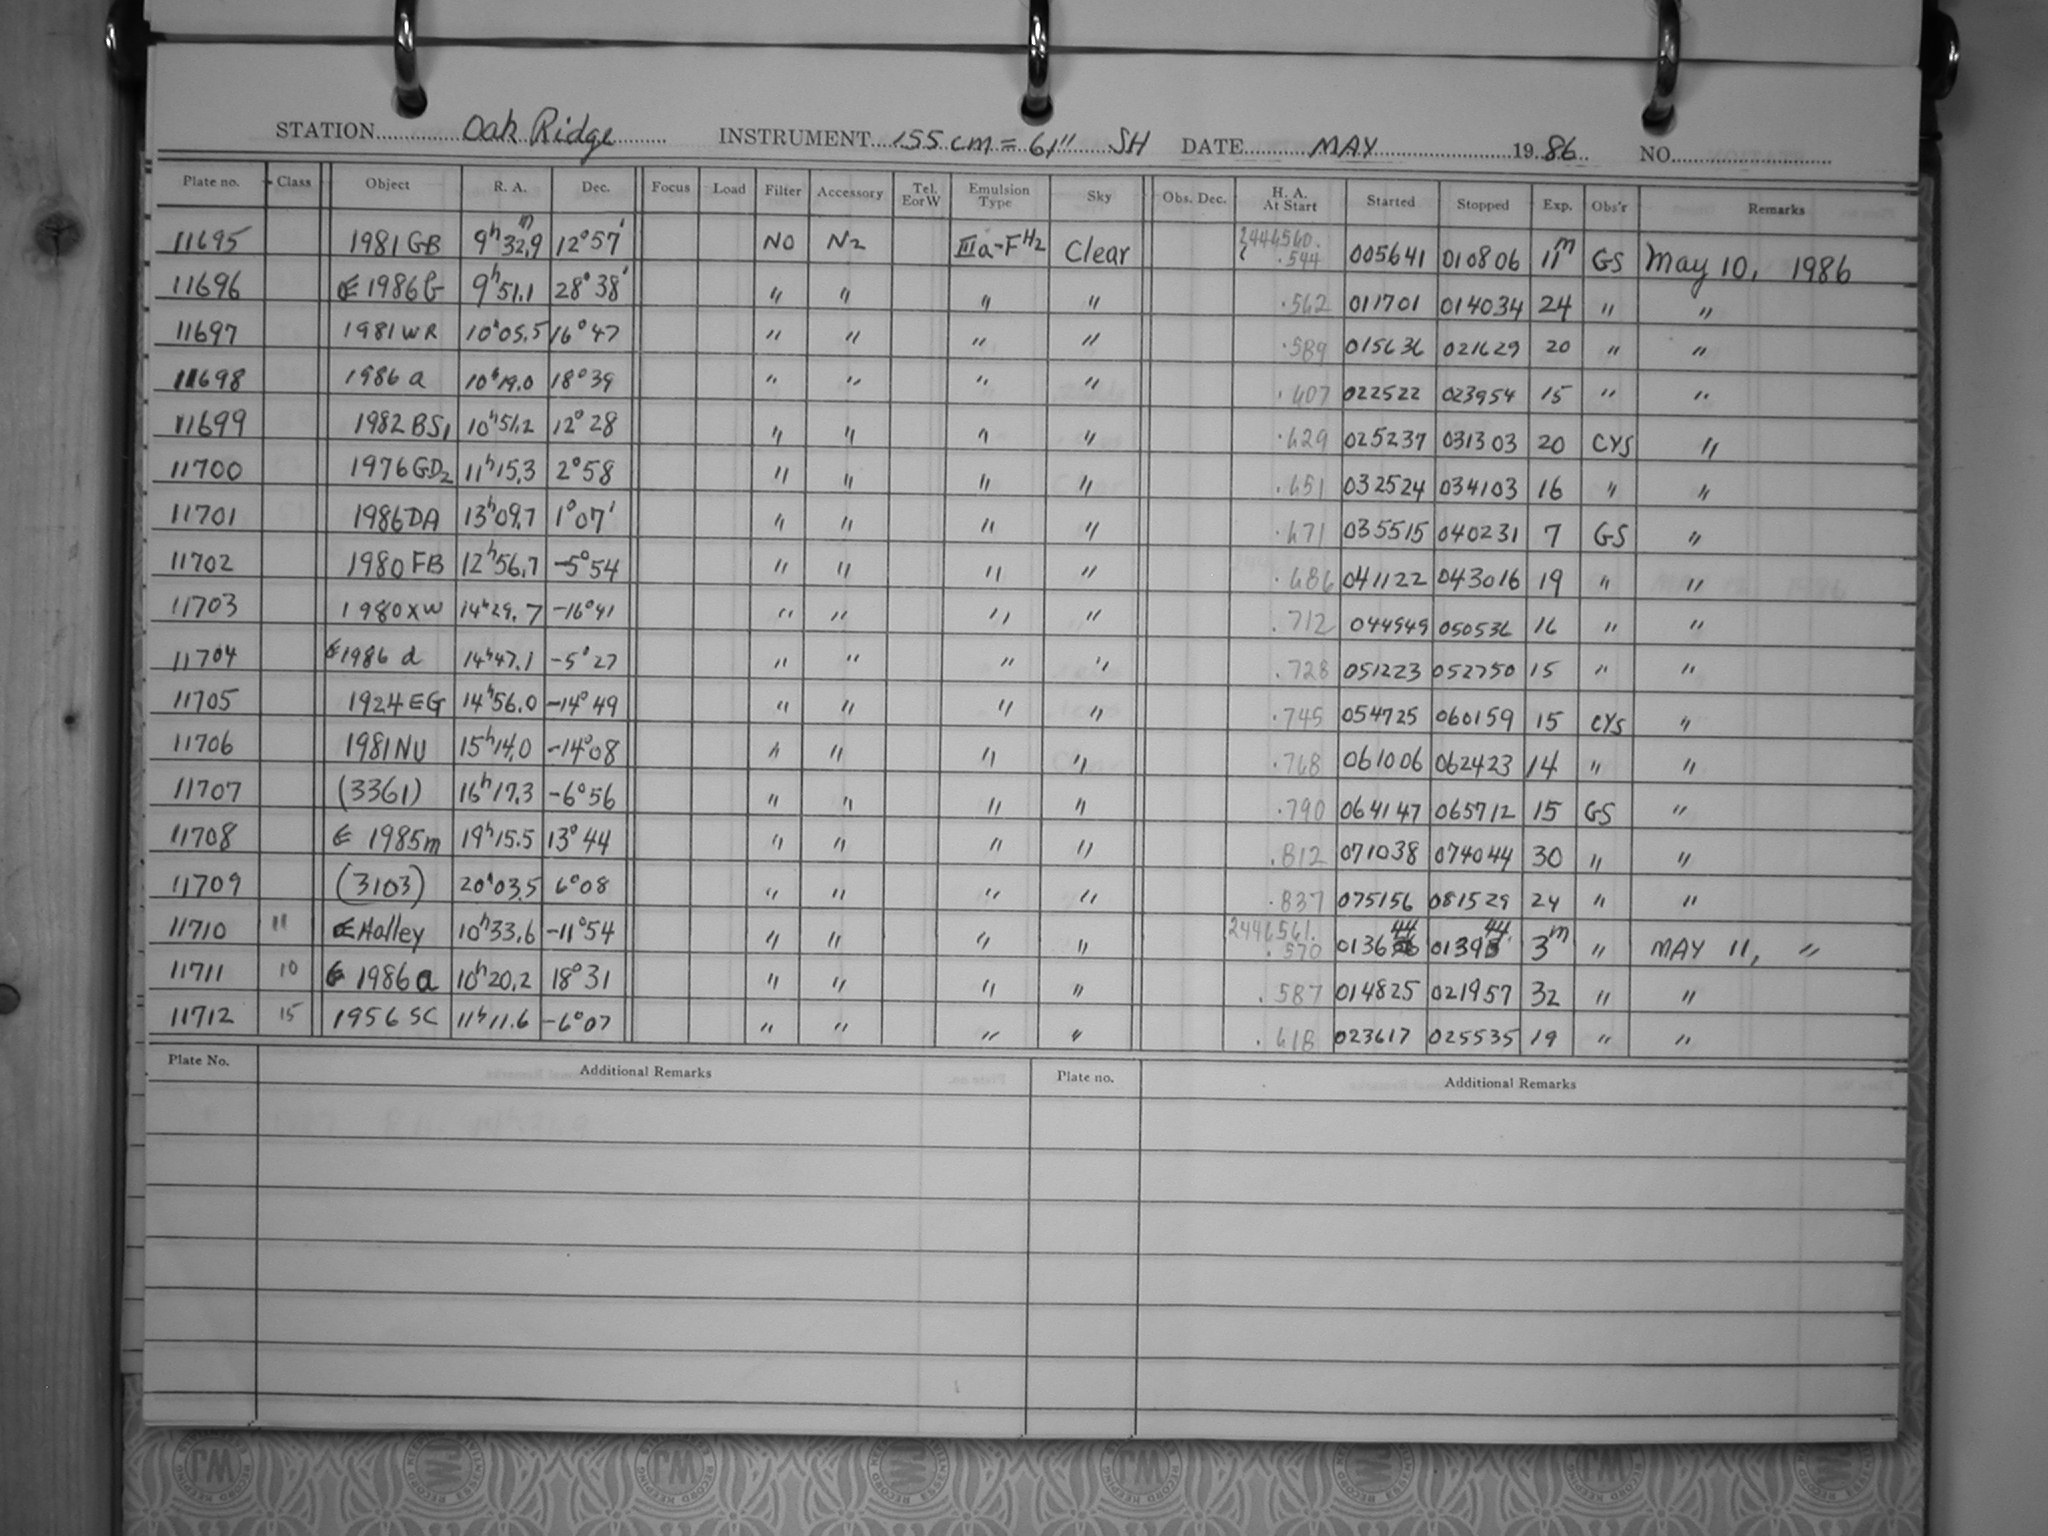 STATION Oak Ridge INSTRUMENT 155 cm = 61" SH DATE MAY 1986 NO.
Plate no. Class Object R. A. Dec. Focus Load Filter Accessory Tel. E or W Emulsion Type Sky Obs. Dec. H. A. At Start Started Stopped Exp. Obs'r Remarks
11695 1981 GB 9h 32m.9 12° 57' NO N2 IIIa-F H2 Clear 2446560. .544 005641 010806 11m GS May 10, 1986
11696 1986 G 9h 51.1 28° 38' " " " " .562 011701 014034 24 " "
11697 1981 WR 10h 05.5 16° 47 " " " " .589 015636 021629 20 " "
11698 1986 a 10h 19.0 18° 39 " " " " .607 022522 023954 15 " "
11699 1982 BS1 10h 51.2 12° 28 " " " " .629 025237 031303 20 CYS "
11700 1976 GD2 11h 15.3 2° 58 " " " " .651 032524 034103 16 " "
11701 1986 DA 13h 09.7 1° 07' " " " " .671 035515 040231 7 GS "
11702 1980 FB 12h 56.7 -5° 54 " " " " .686 041122 043016 19 " "
11703 1980 XW 14h 29.7 -16° 41 " " " " .712 044949 050536 16 " "
11704 1986 d 14h 47.1 -5° 27 " " " " .728 051223 052750 15 " "
11705 1924 EG 14h 56.0 -14° 49 " " " " .745 054725 060159 15 CYS "
11706 1981 NU 15h 14.0 -14° 08 " " " " .768 061006 062423 14 " "
11707 (3361) 16h 17.3 -6° 56 " " " " .790 064147 065712 15 GS "
11708 1985 m 19h 15.5 13° 44 " " " " .812 071038 074044 30 " "
11709 (3103) 20h 03.5 6° 08 " " " " .837 075156 081529 24 " "
11710 11 Halley 10h 33.6 -11° 54 " " " " 2446561. .570 013644 013944 3m " MAY 11, "
11711 10 1986 a 10h 20.2 18° 31 " " " " .587 014825 021957 32 " "
11712 15 1956 SC 11h 11.6 -6° 07 " " " " .618 023617 025535 19 " "
Plate No. Additional Remarks Plate no. Additional Remarks